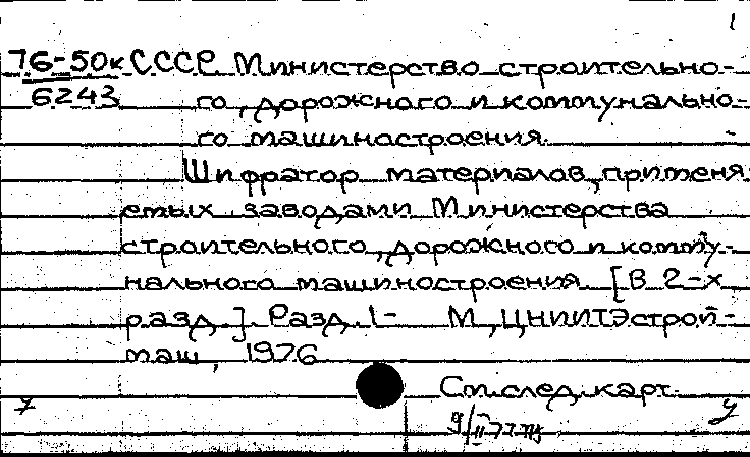 1
76-50к СССР. Министерство строительно-
6243 го, дорожного и коммунально-
го машиностроения.
Шифратор материалов, применя
емых заводами Министерства
строительного, дорожного и комму-
нального машиностроения. [В 2-х
разд.]. Разд. 1- М, ЦНИИТЭстрой-
маш, 1976
См. след. карт.